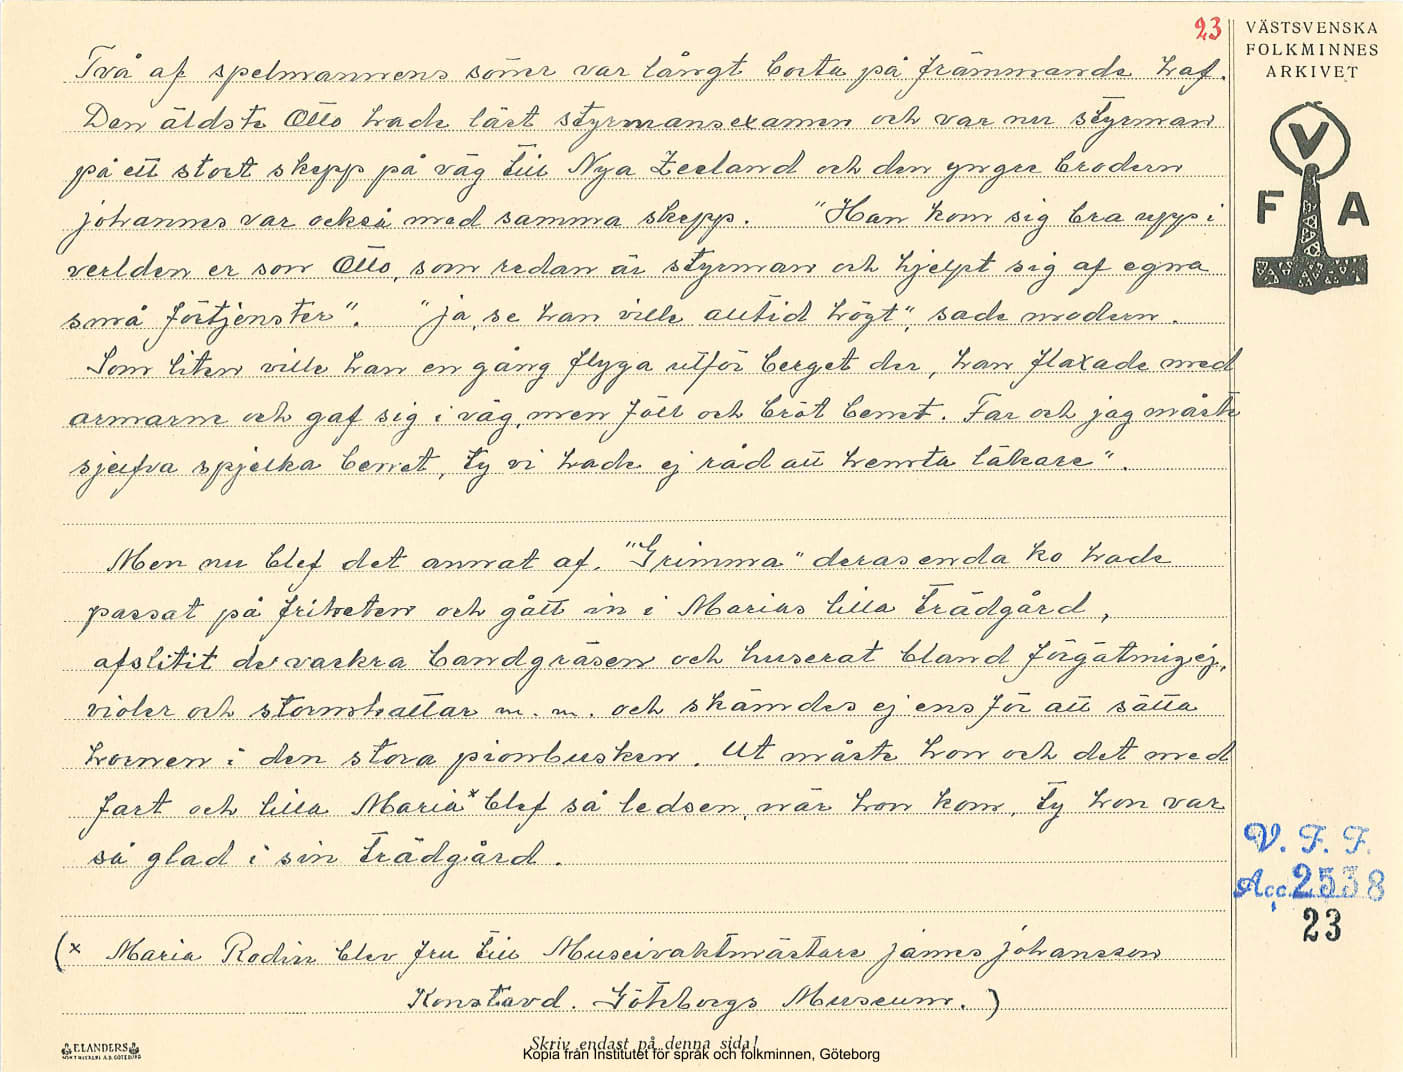 23
VÄSTSVENSKA
FOLKMINNES
ARKIVET
V
F A
Två af spelmannens söner var långt borta på främmande haf.
Den äldste Otto hade läst styrmansexamen och var nu styrman
på ett stort skepp på väg till Nya Zeeland och den yngre brodern
johannes var också med samma skepp. "Han kom sig bra upp i
verlden er son Otto, som redan är styrman och hjelpt sig af egna
små förtjenster". "ja, se han ville alltid högt", sade modern.
Som liten ville han en gång flyga utför berget der, han flaxade med
armarne och gaf sig i väg, men föll och bröt benet. Far och jag måste
sjelfva spjelka benet, ty vi hade ej råd att hemta läkare".
Men nu blef det annat af. "Grimma" deras enda ko hade
passat på friheten och gått in i Marias lilla trädgård,
afslitit de vackra bandgräsen och huserat bland förgätmigej,
violer och stormhattar m. m. och skämdes ej ens för att sätta
hornen i den stora pionbusken. Ut måste hon och det med
fart och lilla Maria* blef så ledsen, när hon kom, ty hon var
så glad i sin trädgård.
(x Maria Rodin blev fru till Museivaktmästare james johansson
Konstavd. Göteborgs Museum.)
V. F. F.
Acc. 2538
23
E.LANDERS
Skriv endast på denna sida!
Kopia från Institutet för språk och folkminnen, Göteborg